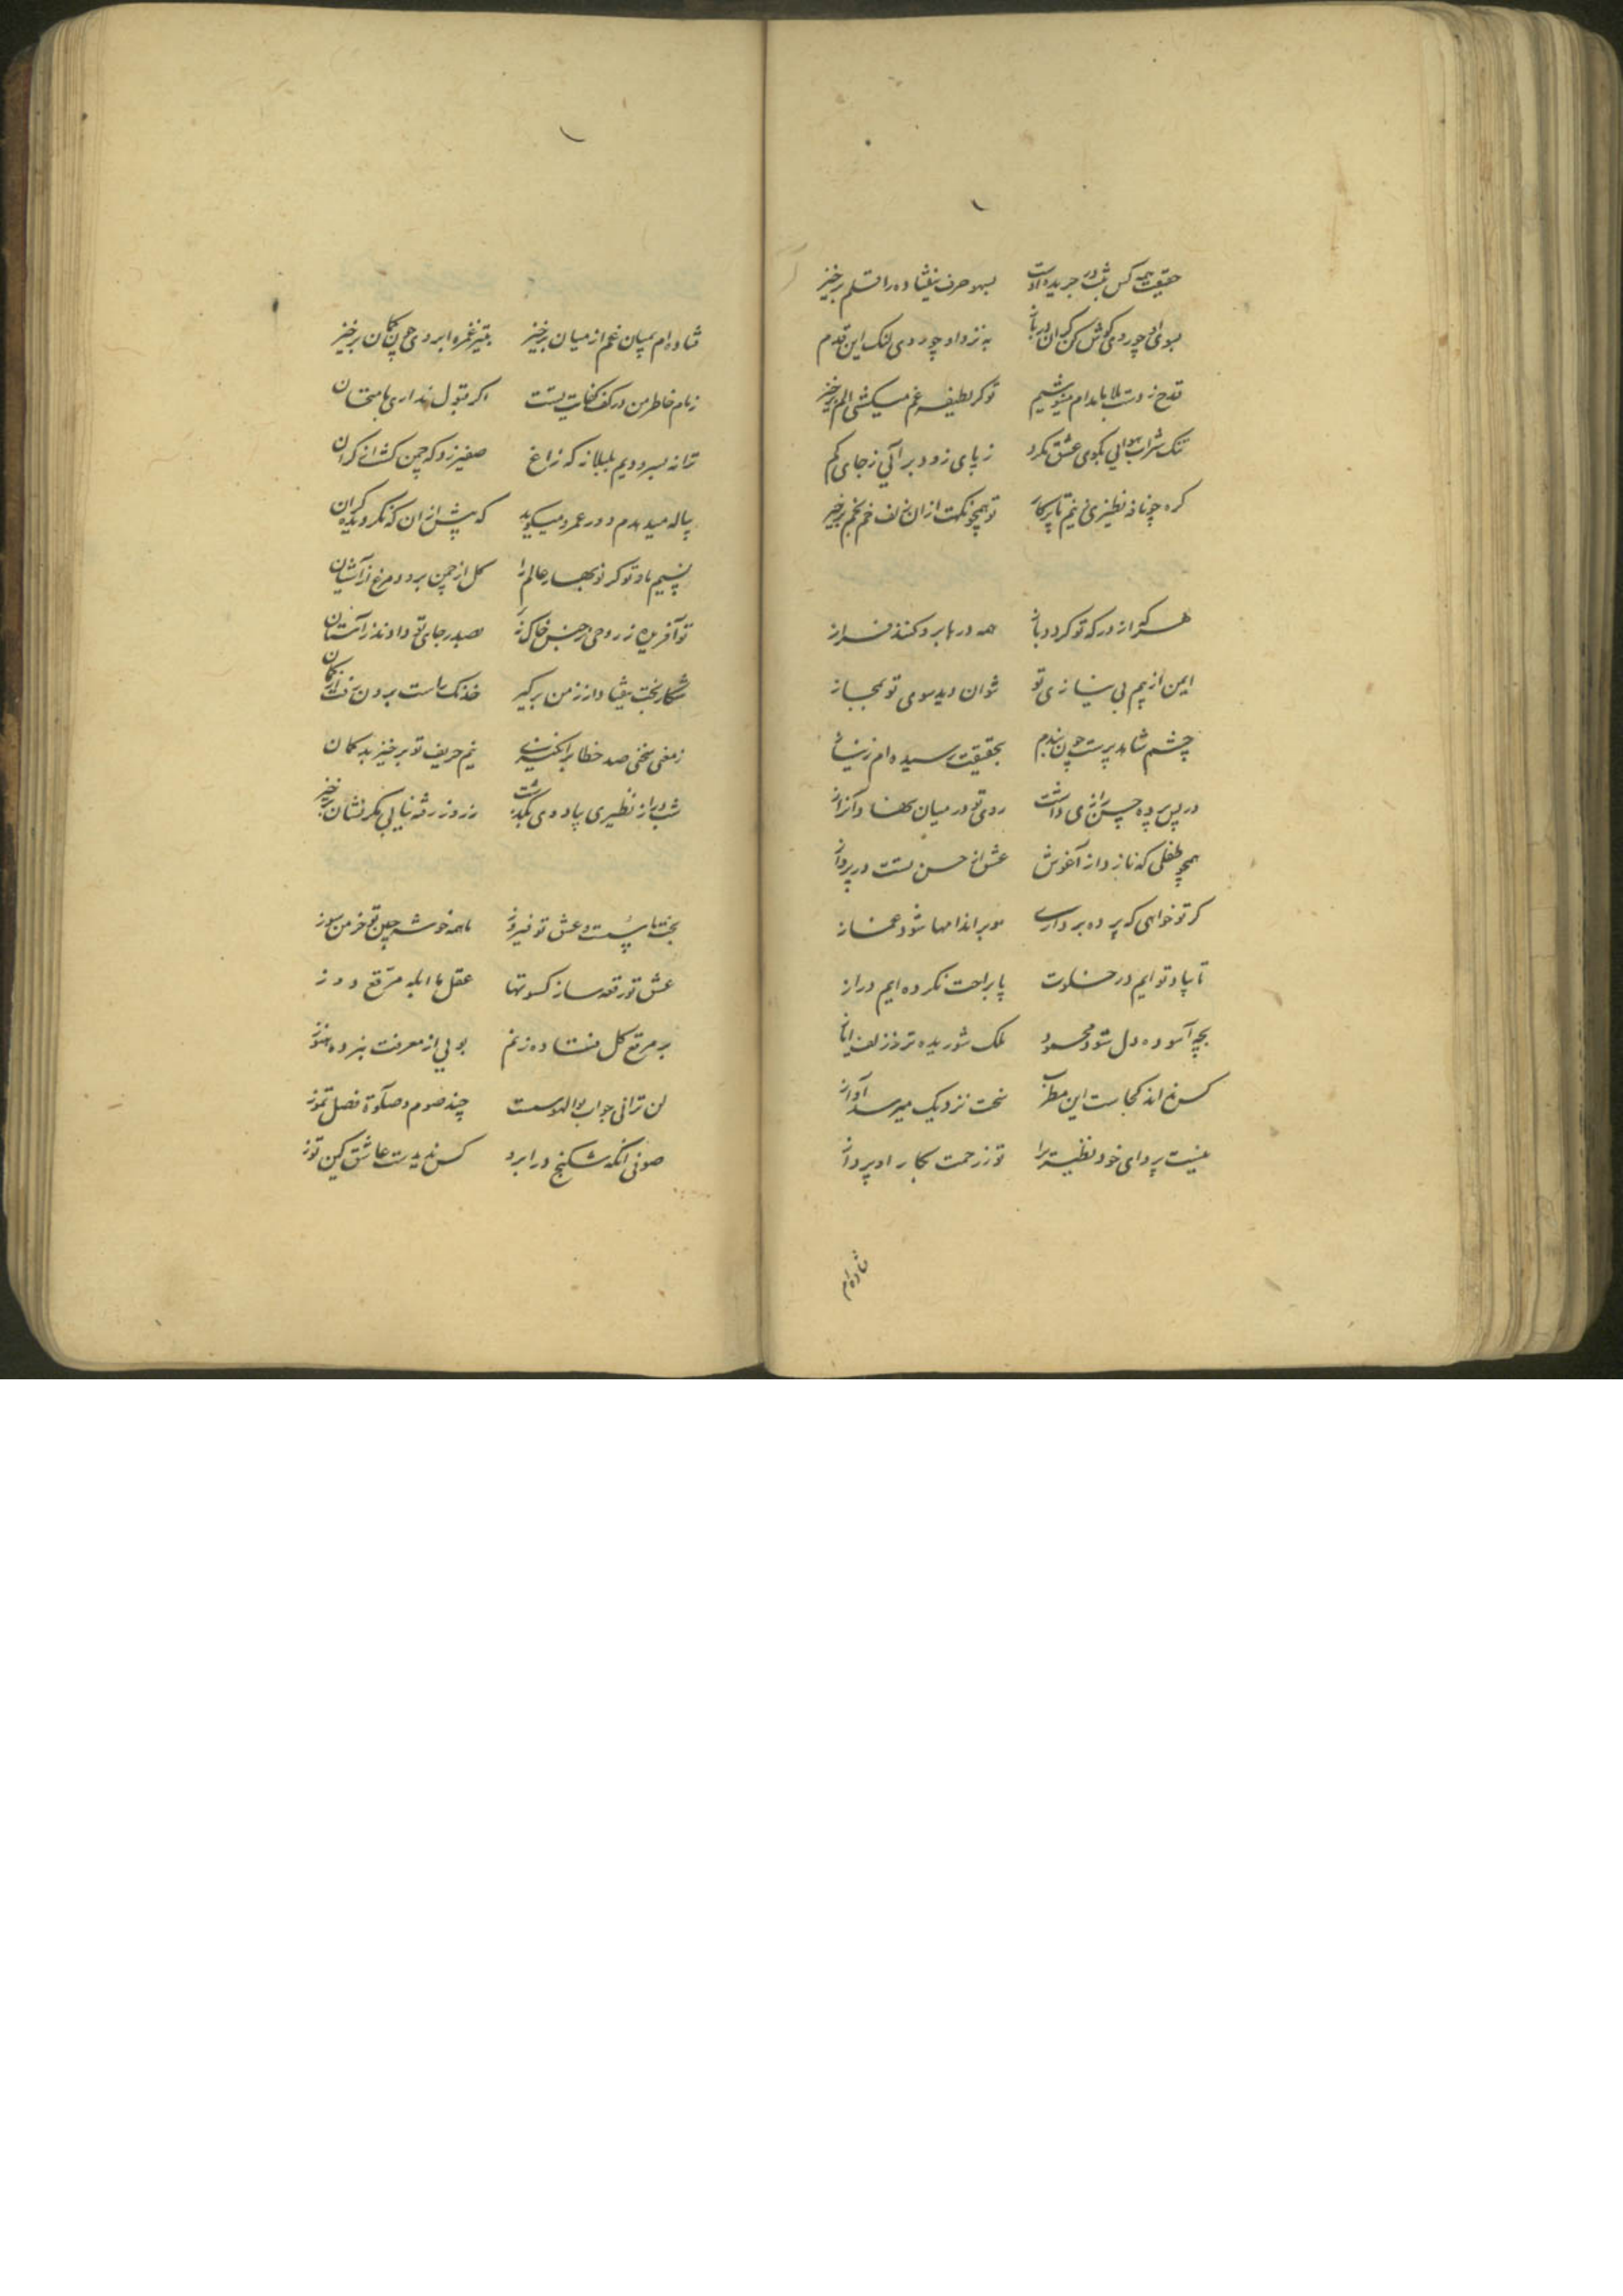 حقیقت همه کس ثبت در جریده اوست بسهو حرف نیفتاده را قلم برخیز
بسوی او چو روی گوش کن
به نزد او چو دوی لنگ این قدم
قدح ز دست بلا با مدام مینوشیم تو کر لطیفه غم میکشی الم برخیز
تنک شراب هوایی بکوی عشق نکرد ز پای زود برآئی ز جای کم
کره چو نافه نظیری تو همچو نکهت ازان زلف خم بخم برخیز
هر که از درکه تو کردد باز همه درها برو کنند فراز
ایمن از بیم بی نیازی تو نتوان دید سوی تو بمجاز
چشم شاهد پرست چون بندم بحقیقت رسیده ام ز نیاز
در پس پرده حسن رازی داشت روی تو در میان نهاد آن راز
همچو طفلی که نازد از آغوش عشق از حسن تست در پرواز
کر تو خواهی که پرده برداری مو بر اندامها شود غماز
تا بیاد تو ایم در خلوت پا براحت نکرده ایم دراز
بچه آسوده دل شود محمود ملک شوریده تر ز زلف ایاز
کس نداند کجاست این مطرب سخت نزدیک میرسد آواز
نیست پروای خود نظیری را تو ز رحمت بکار او پرداز
فتاده ام
فتاده ام بمیان غم از میان برخیز بتیر غمزه و ابروی چون کمان برخیز
زمام خاطر من در کف کفایت تست اکر قبول نداری بامتحان
ترانه بسرودیم بلبلانه که زاغ صفیر زد که چمن
پیاله میدهدم دور عمر و میکوید که پیش ازان که نکردیده کران
نسیم باد تو کر نوبهار عالم را کل از چمن برد و مرغ از آشیان
تو آفریده ز روحی ز جنس خاک نه بصدر جای تو دادند ز آستان
شکار بخت بیفتاد از زمین برگیر خدنک راست برون رفت از کمان
ز مغی سخنی صد خطا برانگیزی نیم حریف تو برخیز بد کمان
شب دراز نظیری بیاد وی بگذشت ز روز رفته نیابی مکر نشان برخیز
بخت ما پست و عشق تو فیروز ما همه خوشه چین تو خرمن سوز
عشق تو رقعه ساز کسوتها عقل ما ابله مرقع دوز
بر مرقع کل فتاده ز نم بویی از معرفت نبرده هنوز
لن ترانی جواب بوالهوسست چند صوم و صلوة فصل تموز
صوفی آنکه شکنج در ابرو کس ندیدست عاشق کین توز